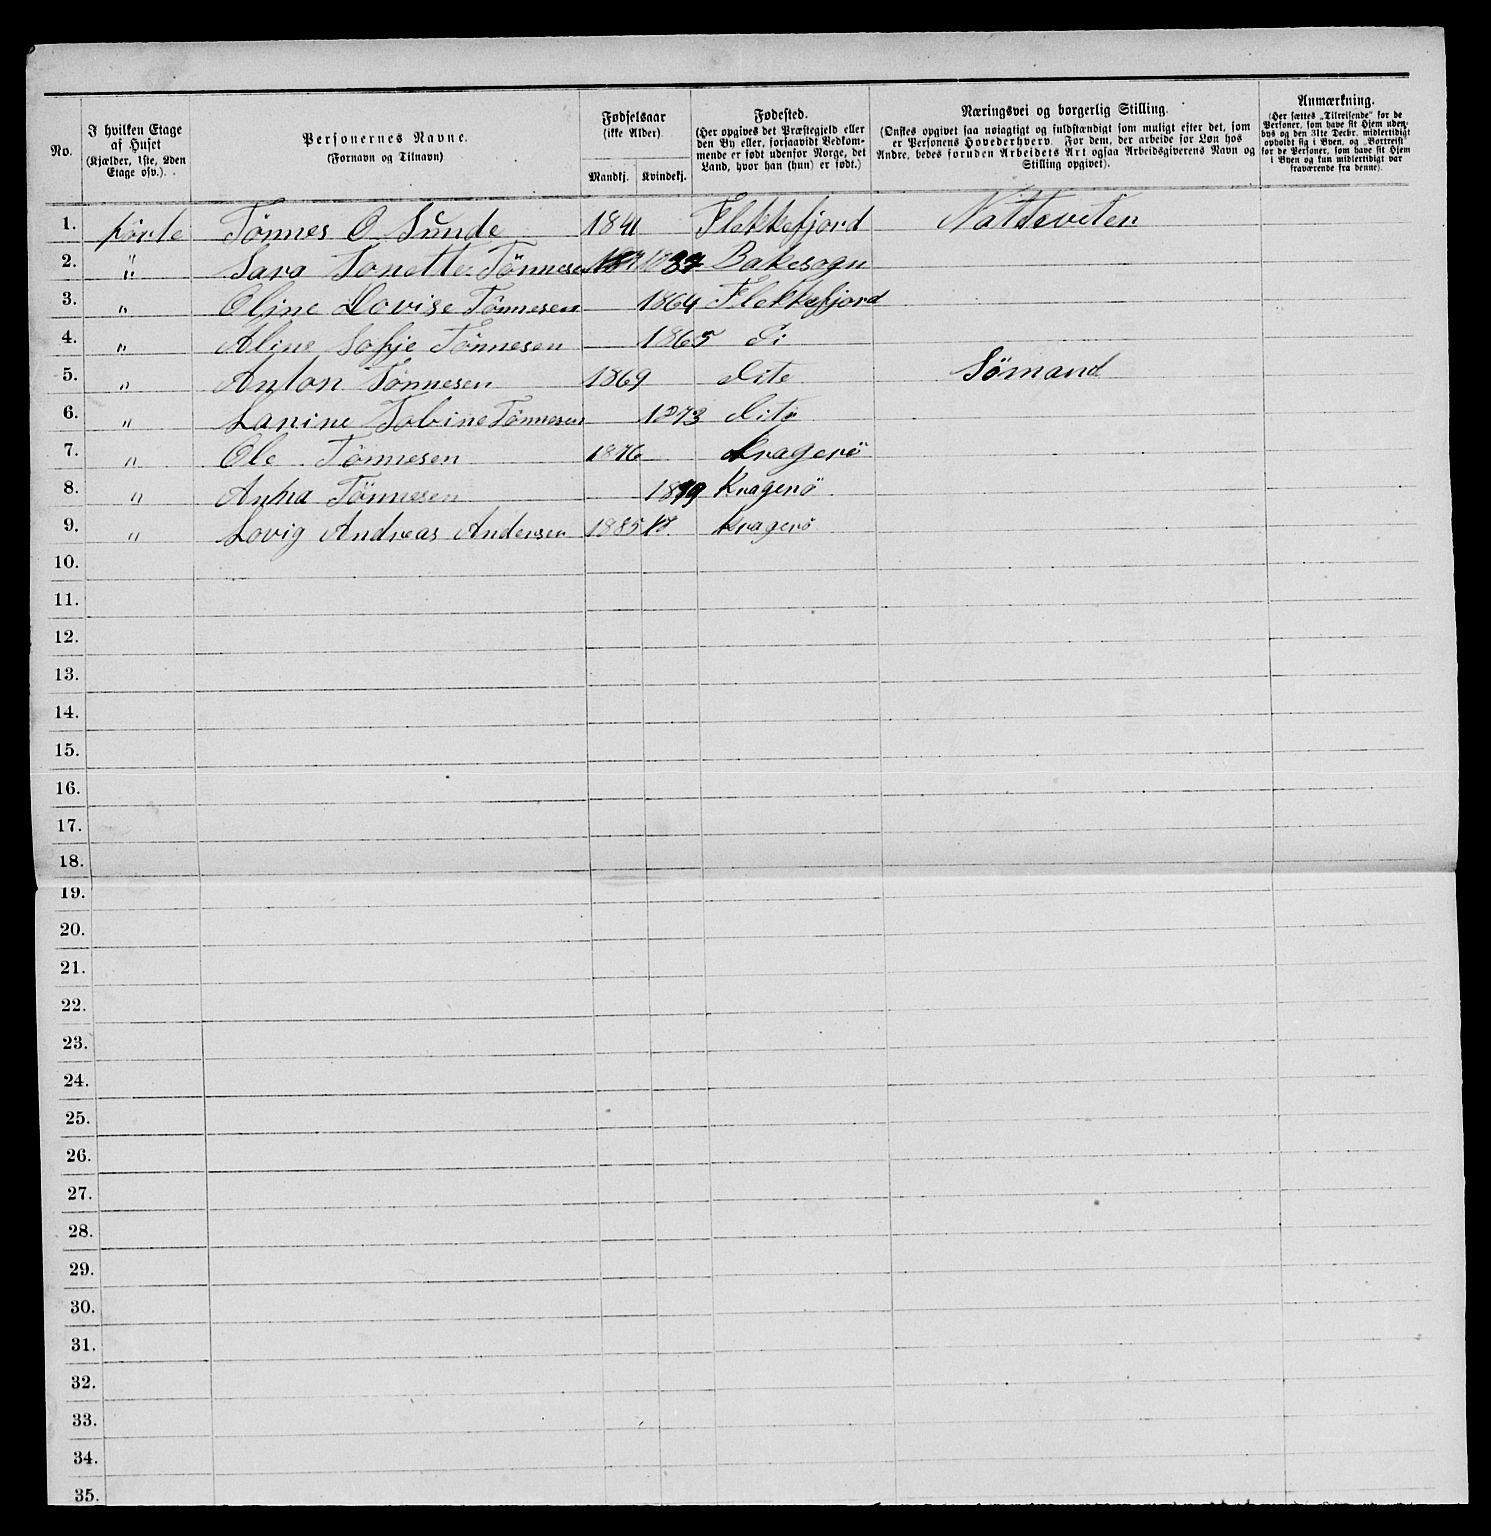 No.
I hvilken Etage
af Huset
(Kjælder, 1ste, 2den
Etage osv.).
Personernes Navne.
(Fornavn og Tilnavn)
Fødselsaar
(ikke Alder).
Mandkj. Kvindekj.
Fødested.
(Her opgives det Præstegjeld eller
den By eller, forsaavidt Vedkom-
mende er født udenfor Norge, det
Land, hvor han (hun) er født.)
Næringsvei og borgerlig Stilling.
(Ønskes opgivet saa nøiagtigt og fuldstændigt som muligt efter det, som
er Personens Hovederhverv. For dem, der arbeide for Løn hos
Andre, bedes foruden Arbeidets Art ogsaa Arbeidsgiverens Navn og
Stilling opgivet).
Anmærkning.
(Her sættes „Tilreisende“ for de
Personer, som have sit Hjem uden-
bys og den 31te Decbr. midlertidigt
opholdt sig i Byen, og „Bortreist“
for de Personer, som have sit Hjem
i Byen og kun midlertidigt var
fraværende fra denne).
1. förle Tönnes O Sunde 1841 Flekkefjord
2. " Sara Tonette Tönnesen Bakesogn
3. " Oline Lovise Tönnesen 1864 Flekkefjord
4. " Aline Sofje Tönnesen 1865 Di
5. " Anton Tönnesen 1869 Dito Sömand
6. " Lanine Tobine Tönnesen 1873 Dito
7. " Ole Tönnesen 1876 Kragerö
8. " Anna Tönnesen 1879 Kragerö
9. " Lovig Andreas Andersen 1885 Kragerö
10.
11.
12.
13.
14.
15.
16.
17.
18.
19.
20.
21.
22.
23.
24.
25.
26.
27.
28.
29.
30.
31.
32.
33.
34.
35.